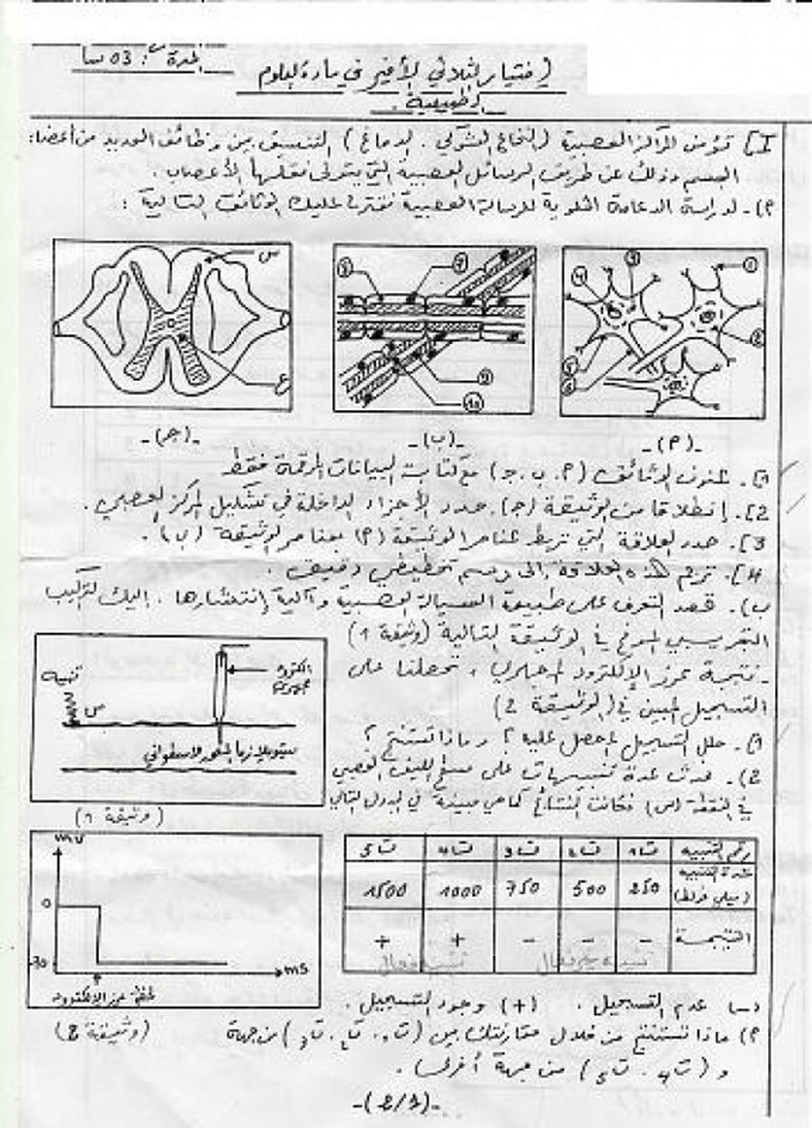 المدة: 03 سا
إختبار الثلاثي الأخير في مادة العلوم
الطبيعية.
I] تؤمن المراكز العصبية (النخاع الشوكي. الدماغ) التنسيق بين وظائف العديد من أعضاء
الجسم وذلك عن طريق الرسائل العصبية التي يتولى نقلها الأعصاب.
أ)- لدراسة الدعامة الخلوية للرسالة العصبية نقترح عليك الوثائق التالية:
س
ع
-(ج)-
8 7
9
10
-(ب)-
4 3 1
2
5
6
-(أ)-
1]. عنون الوثائق (أ. ب. ج) مع كتابة البيانات المرقمة فقط
2]. إنطلاقا من الوثيقة (ج) حدد الأجزاء الداخلة في تشكيل المركز العصبي.
3]. حدد العلاقة التي تربط عناصر الوثيقة (أ) بعناصر الوثيقة (ب).
4]. ترجم هذه العلاقة إلى رسم تخطيطي دقيق.
ب). قصد التعرف على طبيعة السيالة العصبية وآلية إنتشارها. إليك التركيب
التجريبي الموضح في الوثيقة التالية (وثيقة 1)
- نتيجة غرز الإلكترود المجهري، تحصلنا على
التسجيل المبين في (الوثيقة 2)
1)- حلل التسجيل المحصل عليه؟ وماذا تستنتج؟
2)- نحدث عدة تنبيهات على مستوى الليف العصبي
في النقطة (س) فكانت النتائج كما هي مبينة في الجدول التالي
تنبيه
س
الكترود مجهري
سيتوبلازم المحور الاسطواني
(وثيقة 1)
mV
0
-70
ms
لحظة غرز الإلكترود
(وثيقة 2)
رقم التنبيه ت1 ت2 ت3 ت4 ت5
شدة التنبيه (ميلي فولط) 250 500 750 1000 1500
النتيجة - - - + +
(-) عدم التسجيل. (+) وجود التسجيل.
أ) ماذا تستنتج من خلال مقارنتك بين (ت1. ت2. ت3) من جهة
و (ت4. ت5) من جهة أخرى.
-(2/1)-